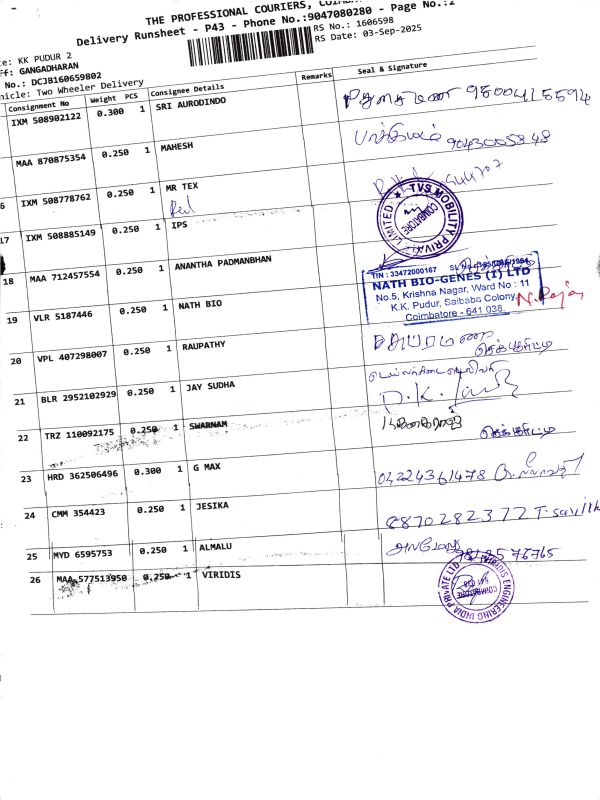 THE PROFESSIONAL COURIERS,
Delivery Runsheet - P43 - Phone No.:9047080280 - Page No.:2
RS No.: 1606598
RS Date: 03-Sep-2025
te: KK PUDUR 2
ff: GANGADHARAN
No.: DCJB160659802
hicle: Two Wheeler Delivery
Consignment No Weight PCS Consignee Details Remarks Seal & Signature
IXM 508902122 0.300 1 SRI AURODINDO 9500415594
MAA 870875354 0.250 1 MAHESH 9043005848
6 IXM 508778762 0.250 1 MR TEX
17 IXM 508885149 0.250 1 IPS
TVS MOBILITY PRIVATE LIMITED
COIMBATORE
18 MAA 712457554 0.250 1 ANANTHA PADMANBHAN
TIN : 33472000167
NATH BIO-GENES (I) LTD
No.5, Krishna Nagar, Ward No : 11
K.K. Pudur, Saibaba Colony,
Coimbatore - 641 038.
19 VLR 5187446 0.250 1 NATH BIO N. Raja
20 VPL 407298007 0.250 1 RAUPATHY
21 BLR 2952102929 0.250 1 JAY SUDHA
22 TRZ 110092175 0.250 1 SWARNAM
23 HRD 362506496 0.300 1 G MAX 04224361478
24 CMM 354423 0.250 1 JESIKA 8870282372
25 MYD 6595753 0.250 1 ALMALU
26 MAA 577513950 0.250 1 VIRIDIS
VIRIDIS ENGINEERING INDIA PRIVATE LTD
COIMBATORE